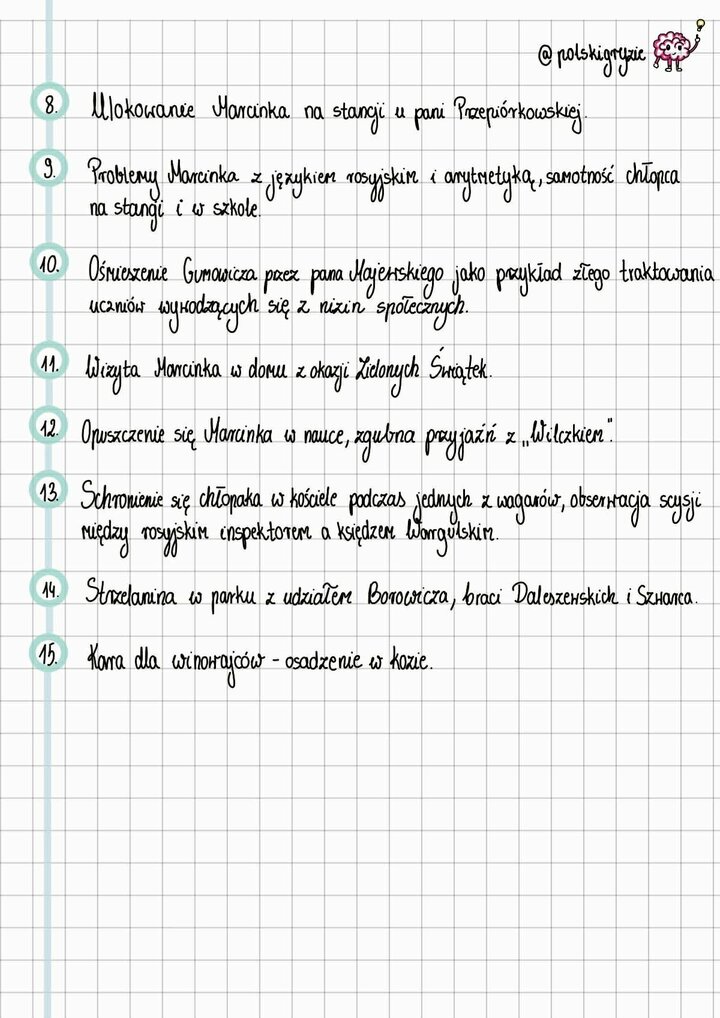 @polskigryzie
8. Ulokowanie Marcinka na stancji u pani Przepiórkowskiej.
9. Problemy Marcinka z językiem rosyjskim i arytmetyką, samotność chłopca
na stancji i w szkole.
10. Ośmieszenie Gumowicza przez pana Majewskiego jako przykład złego traktowania
uczniów wywodzących się z nizin społecznych.
11. Wizyta Marcinka w domu z okazji Zielonych Świątek.
12. Opuszczenie się Marcinka w nauce, zgubna przyjaźń z „Wilczkiem".
13. Schronienie się chłopaka w kościele podczas jednych z wagarów, obserwacja scysji
między rosyjskim inspektorem a księdzem Wargulskim.
14. Strzelanina w parku z udziałem Borowicza, braci Daleszewskich i Szwarca.
15. Kara dla winowajców - osadzenie w kozie.